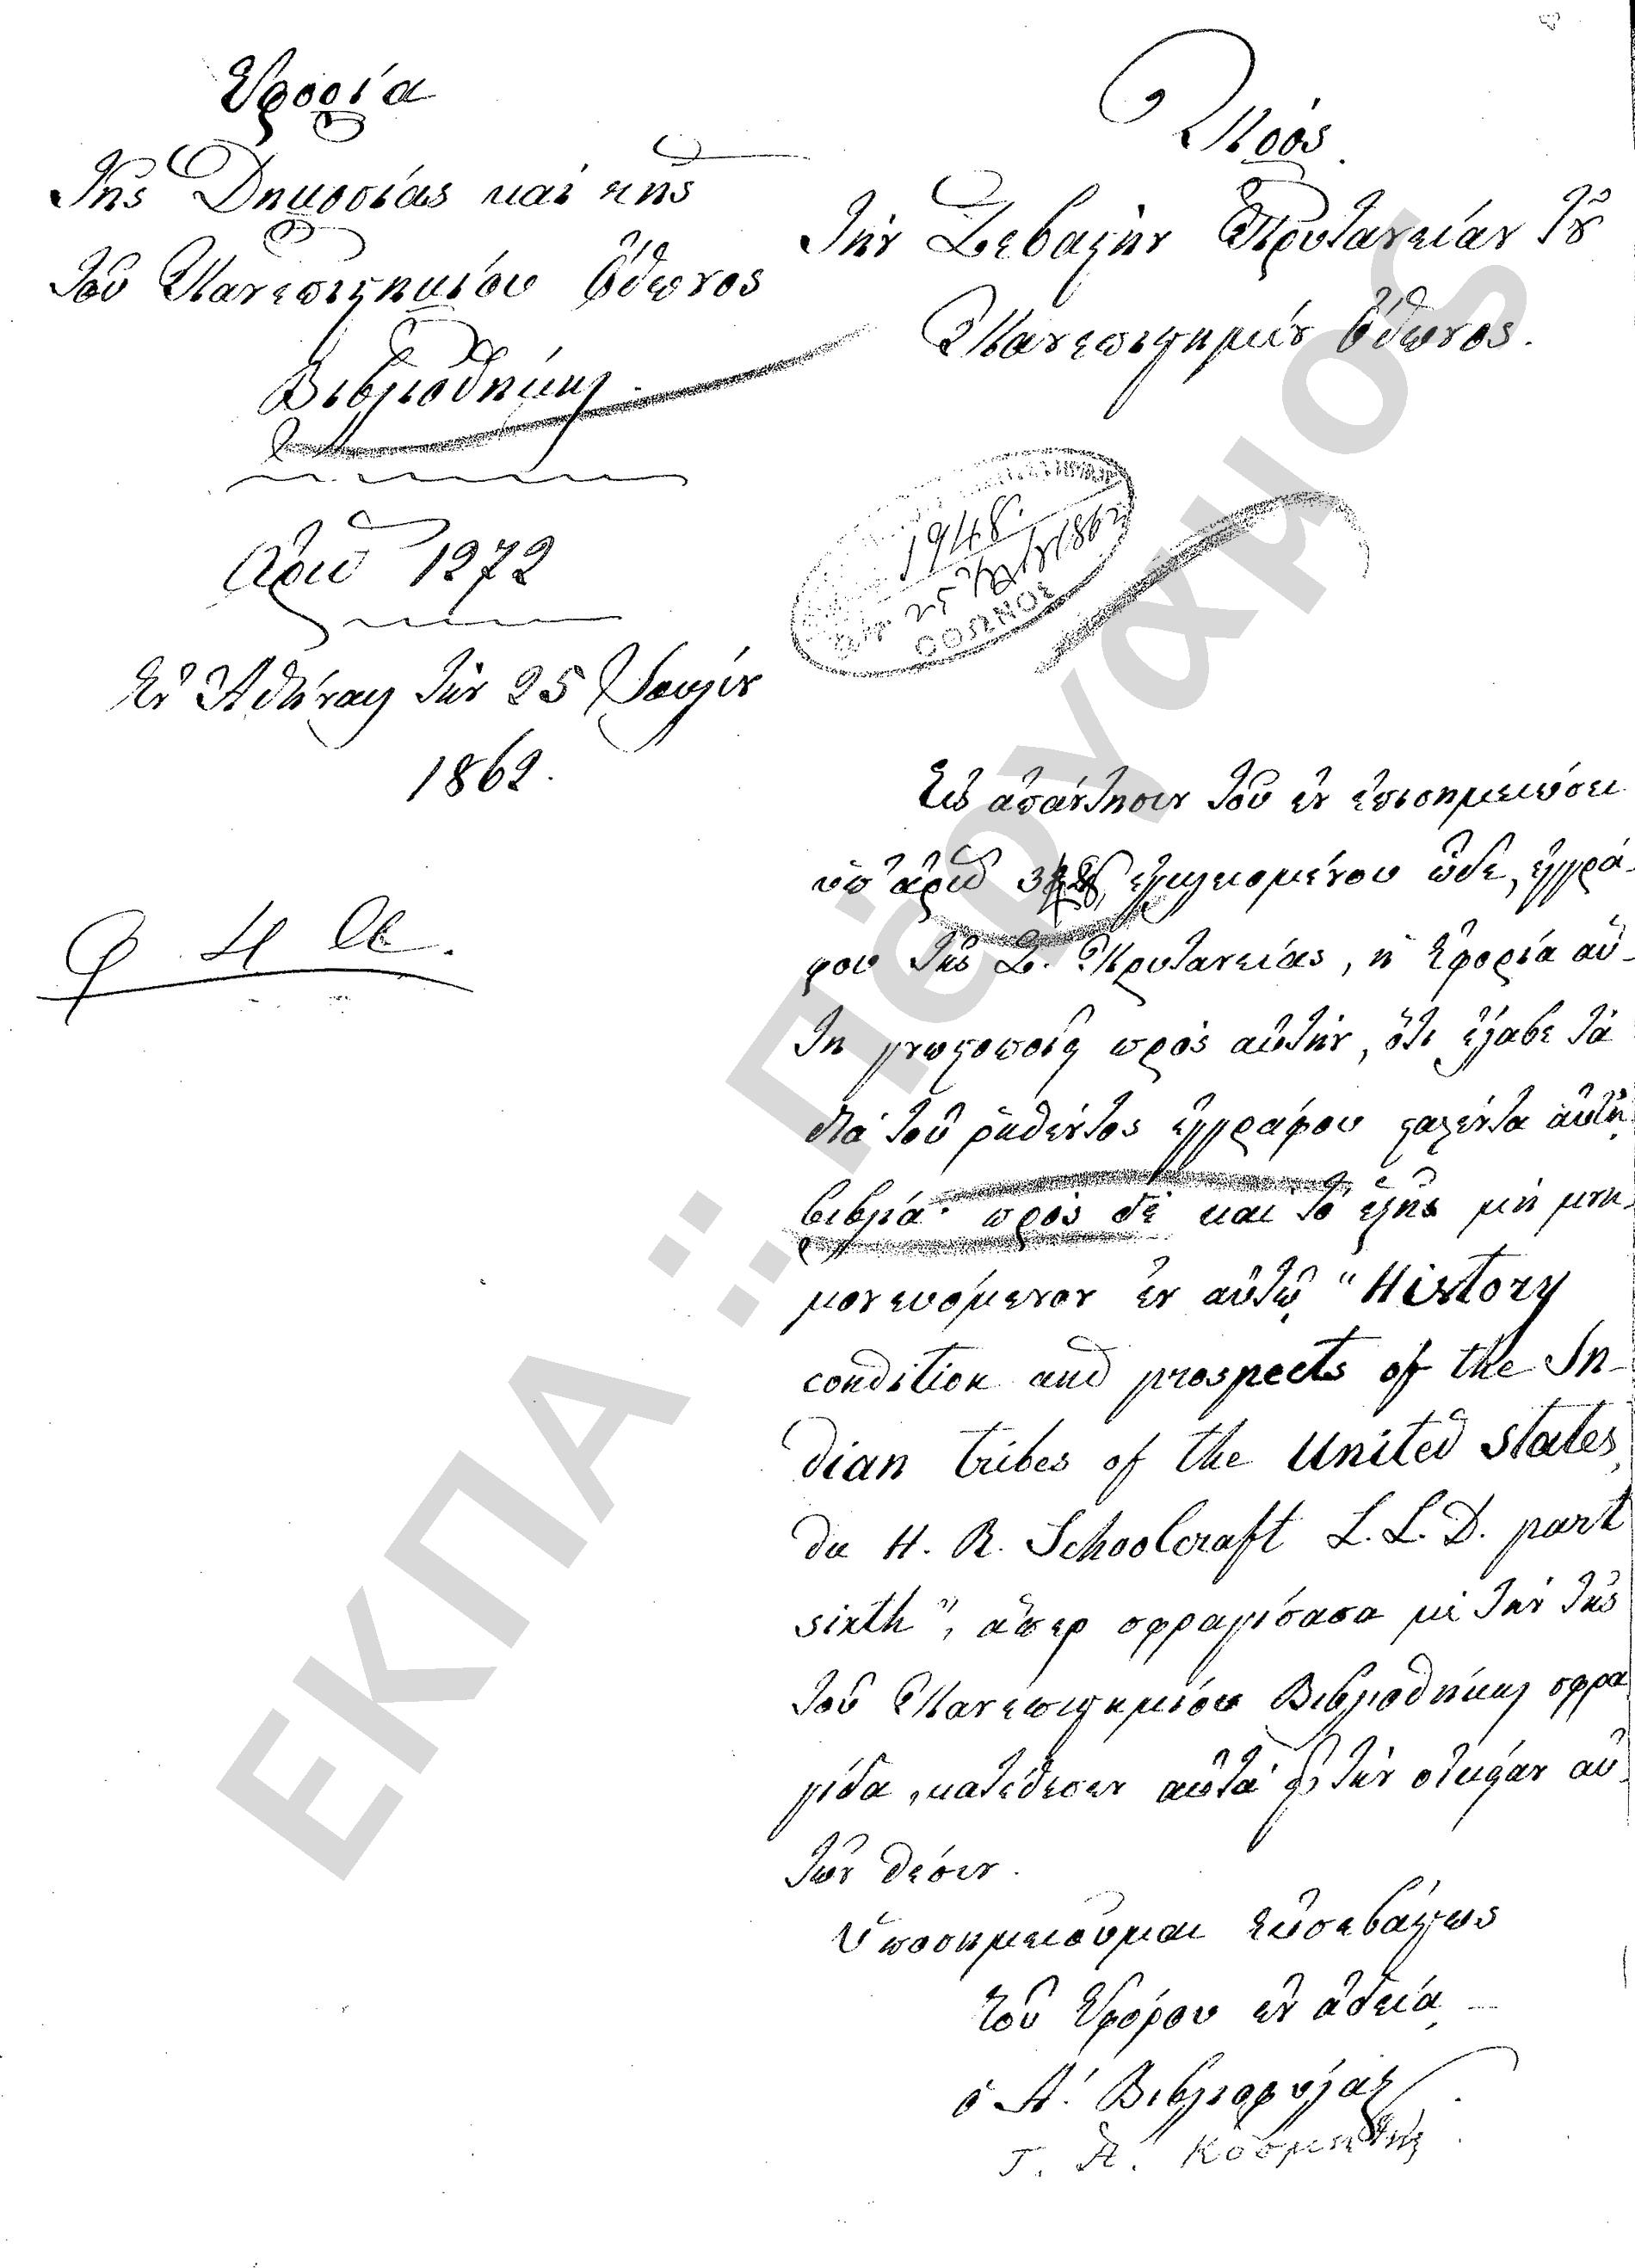 Ἐφορία
Τῆς Δημοσίας καὶ τῆς
τοῦ Πανεπιστημίου Ὄθωνος
Βιβλιοθήκης.
Ἀριθ 1272
Ἐν Ἀθήναις τὴν 25 Ἰουλίου
1862.
Φ Η α.
Πρὸς
Τὴν Σεβαστὴν Πρυτανείαν τοῦ
Πανεπιστημίου Ὄθωνος.
1948.
25 1862
ΟΘΩΝΟΣ
Εἰς ἀπάντησιν τοῦ ἐν ἐπισημειώσει
ὑπ' ἀριθ ἐγκλεισμένου ὧδε, ἐγγρά-
φου τῆς Σ. Πρυτανείας, ἡ Ἐφορία αὕ-
τη γνωστοποιεῖ πρὸς αὐτήν, ὅτι ἔλαβε τὰ
διὰ τοῦ ῥηθέντος ἐγγράφου σταλέντα αὐτῇ
βιβλία· πρὸς δὲ καὶ τὸ ἑξῆς μὴ μνη-
μονευόμενον ἐν αὐτῷ "History
condition and prospects of the In-
dian tribes of the United States,
du H. R. Schoolcraft L. L. D. part
sixth", ἅπερ σφραγίσασα μὲ τὴν τῆς
τοῦ Πανεπιστημίου Βιβλιοθήκης σφρα
γίδα, κατέθεσεν αὐτὰ εἰς τὴν οἰκείαν αὐ-
τῶν θέσιν.
Ὑποσημειοῦμαι εὐσεβάστως
τοῦ Ἐφόρου ἐν ἀδείᾳ
ὁ Α'. Βιβλιοφύλαξ
Γ. Α. Κοσμητής
ΕΚΠΑ :: Πέργαμος